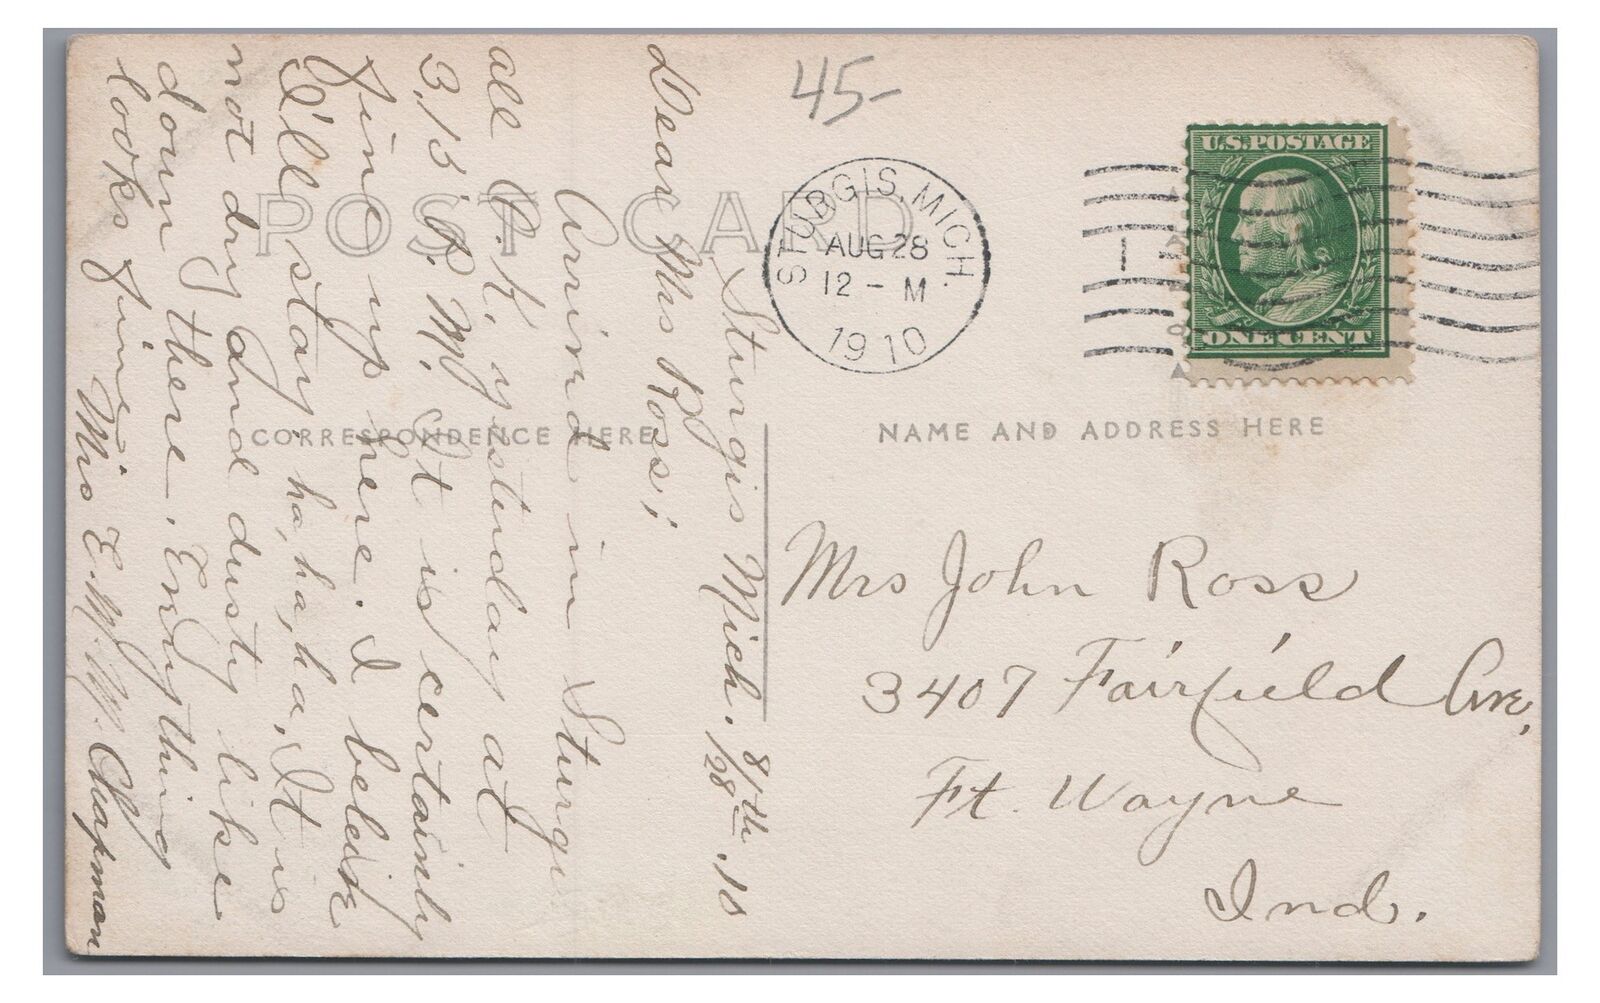 45-
POST CARD
STURGIS, MICH.
AUG 28
12 - M
1910
1
U.S. POSTAGE
ONE CENT
CORRESPONDENCE HERE
NAME AND ADDRESS HERE
Sturgis Mich. 8/28th, 10
Dear Mrs Ross;
Arrived in Sturgis
all O.K. yesterday at
3,15 P.M. It is certainly
fine up here. I beleive
I'll stay. ha, ha, ha, It is
not dry and dusty like
down there. Everything
looks fine.
Mrs E. M. Chapman
Mrs John Ross
3407 Fairfield Ave,
Ft. Wayne
Ind.